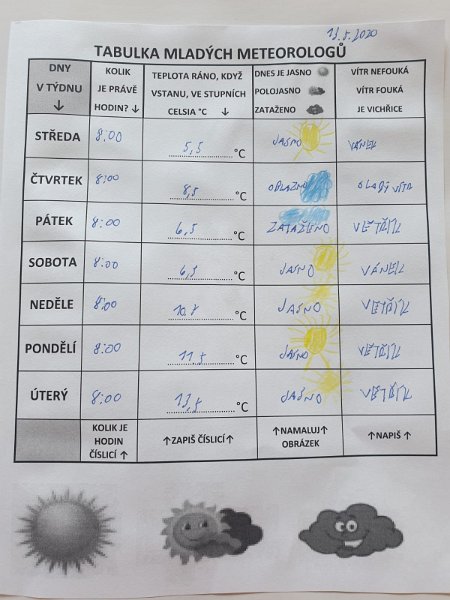 13.5.2020
TABULKA MLADÝCH METEOROLOGŮ
DNY V TÝDNU ↓
KOLIK JE PRÁVĚ HODIN? ↓
TEPLOTA RÁNO, KDYŽ VSTANU, VE STUPNÍCH CELSIA °C ↓
DNES JE JASNO POLOJASNO ZATAŽENO
VÍTR NEFOUKÁ VÍTR FOUKÁ JE VICHŘICE
STŘEDA 8:00 5,5 °C JASNO VÁNEK
ČTVRTEK 8:00 8,5 °C
PÁTEK 8:00 6,5 °C ZATAŽENO VĚTŘÍK
SOBOTA 8:00 6,5 °C JASNO VÁNEK
NEDĚLE 8:00 °C JASNO VĚTŘÍK
PONDĚLÍ 8:00 11,5 °C JASNO VĚTŘÍK
ÚTERÝ 8:00 13,5 °C JASNO VĚTŘÍK
KOLIK JE HODIN ČÍSLICÍ ↑
↑ZAPIŠ ČÍSLICÍ↑
↑NAMALUJ↑ OBRÁZEK
↑NAPIŠ ↑